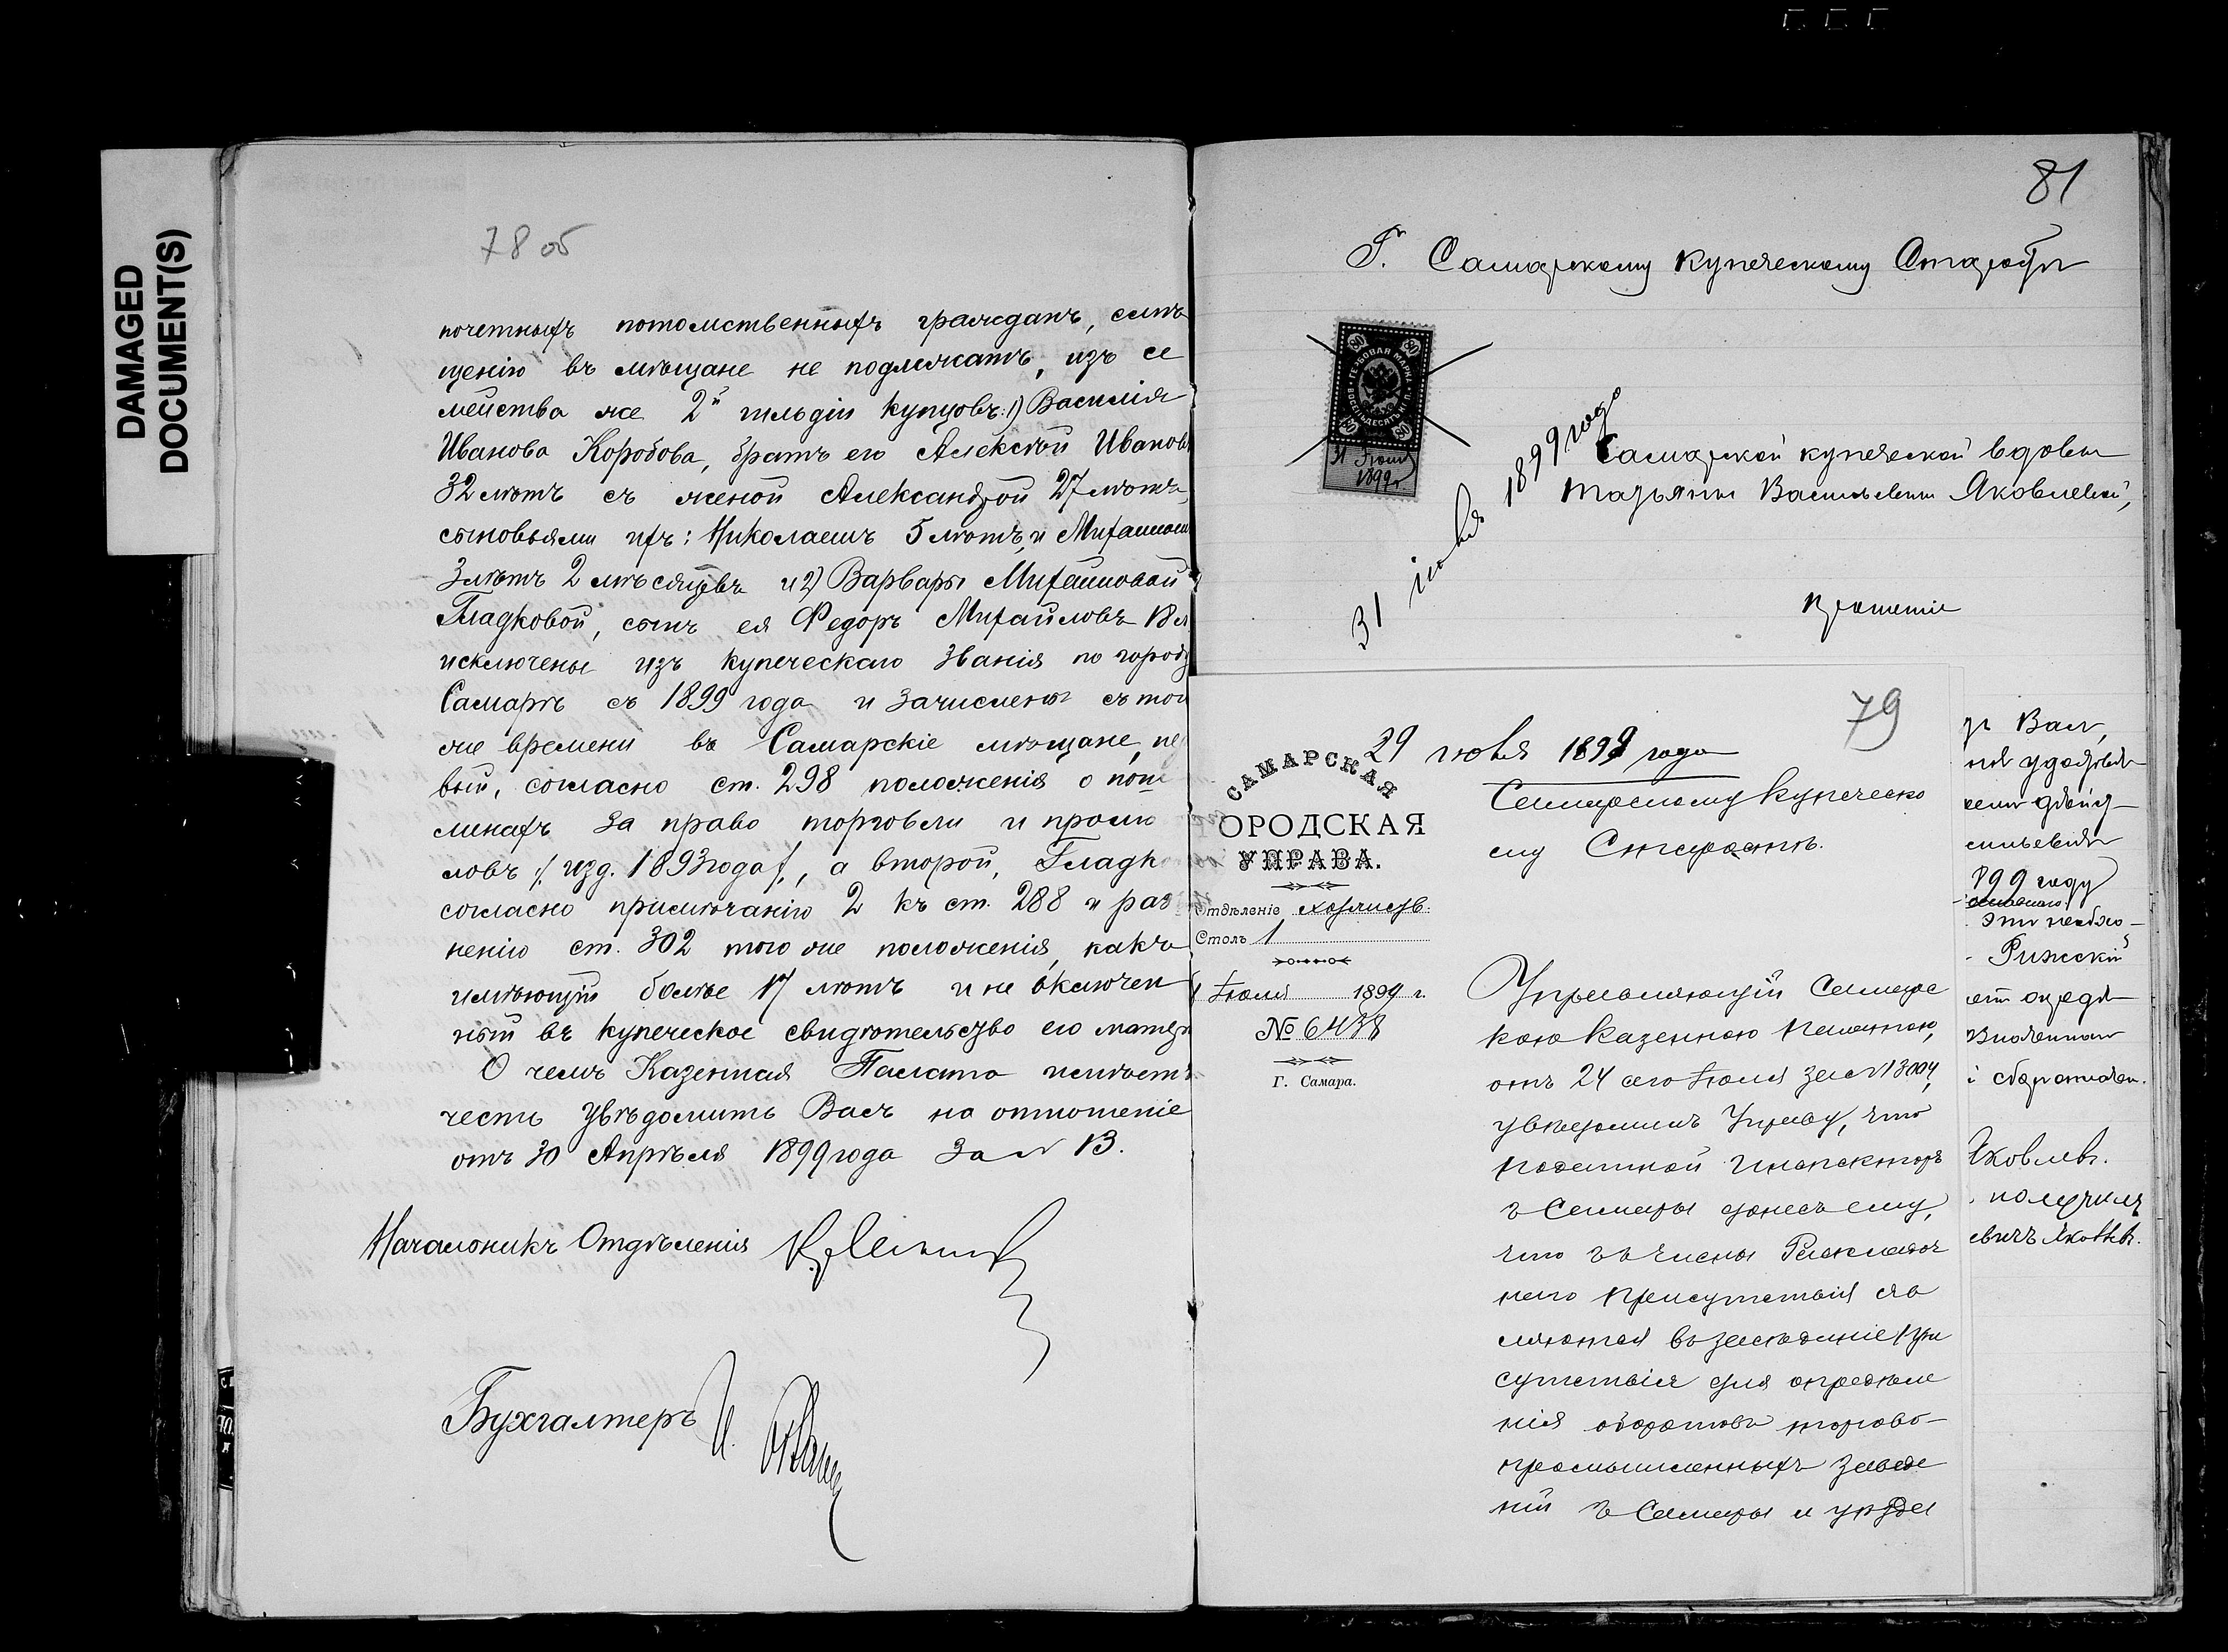 DAMAGED
DOCUMENT(S)
78 об
почетныхъ потомственныхъ гражданъ, смѣ
щенію въ мѣщане не подлежатъ, изъ се
мейства же 2й гильдіи купцовъ: 1) Василія
Иванова Коробова, братъ его Алексѣй Иванов
32 лѣтъ съ женой Александрой 27 лѣтъ
сыновьями ихъ: Николаемъ 5 лѣтъ, и Михаилом
3 лѣтъ 2 мѣсяцевъ и 2) Варвары Михайловой
Гладковой, сынъ ея Федоръ Михайловъ 18 л
исключены изъ купеческаго званія по городу
Самарѣ съ 1899 года и зачислены съ той
же времени въ Самарскіе мѣщане, пер
вый, согласно ст. 298 положенія о пош
линахъ за право торговли и промы
словъ /. изд. 1893 года /., а второй, Гладк
согласно примѣчанію 2 къ ст. 288 и раз
ненію ст. 302 того же положенія, какъ
имѣющій болѣе 17 лѣтъ и не включен
ный въ купеческое свидѣтельство его матери
О чемъ Казенная Палата имѣетъ
честь увѣдомить Васъ на отношеніе
отъ 30 Апрѣля 1899 года за № 13.
Начальникъ Отдѣленія
Бухгалтеръ
81
Г. Самарскому Купеческому Старостѣ
ГЕРБОВАЯ МАРКА
ВОСЕМЬДЕСЯТЪ КОП.
80 80
80 80
31 Іюля
1899 г.
31 іюля 1899 года
Самарской купеческой вдовы
Марьяны Васильевны Яковлевой,
Прошеніе
79
29 июля 1899 года
САМАРСКАЯ
ОРОДСКАЯ
УПРАВА.
Отдѣленіе
Столъ 1
Іюля 1899 г.
№ 6438
Г. Самара.
Самарскому Купеческо
му Старостѣ.
Управляющій Самарс
кою Казенною Палатою,
отъ 24 сего Іюля за № 13004,
увѣдомилъ Управу, что
Податной Инспекторъ
г. Самары донесъ ему,
что въ Члены Раскладоч
наго Присутствія яв
ляются въ засѣданіе При
сутствія для опредѣле
нія оборотовъ торгово-
промышленныхъ заведе
ній г. Самары и уѣзда
Вал,
сильевна
899 году
Рижскій
Яковлевъ.
получилъ
евичъ Яковлевъ.